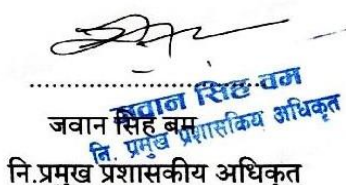 ..............................
जवान सिंह बम
नि. प्रमुख प्रशासकिय अधिकृत
जवान सिंह बम
नि.प्रमुख प्रशासकीय अधिकृत